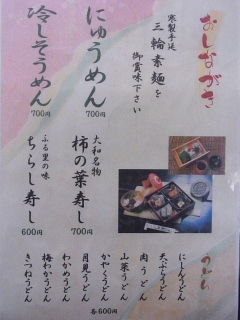 おしながき
寒製手延
三輪素麺を
御賞味下さい
にゅうめん
700円
冷しそうめん
700円
大和名物
柿の葉寿し
700円
ふる里の味
ちらし寿し
600円
うどん
にしんうどん
天ぷらうどん
肉うどん
山菜うどん
かやくうどん
月見うどん
わかめうどん
梅わかうどん
きつねうどん
各600円